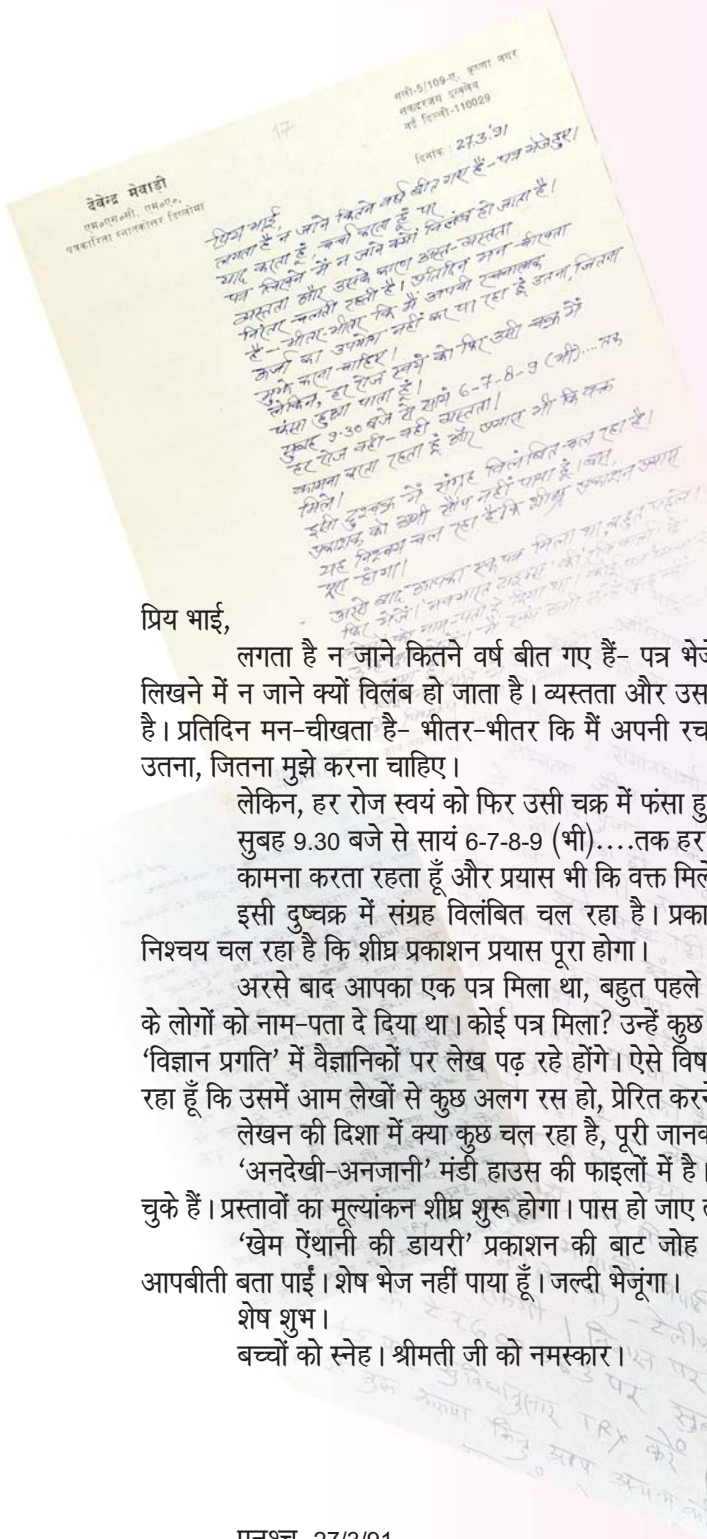 17
गली-5/109-ए, कृष्णा नगर
सफदरजंग इन्क्लेव
नई दिल्ली-110029
दिनांक : 27.3.'91
देवेन्द्र मेवाड़ी
एम०एस०सी, एम०ए०,
पत्रकारिता स्नातकोत्तर डिप्लोमा
प्रिय भाई,
लगता है न जाने कितने वर्ष बीत गए हैं - पत्र भेजे हुए।
याद करता हूं, चर्चा करता हूं पर
पत्र लिखने में न जाने क्यों विलंब हो जाता है।
व्यस्तता और उसके कारण अस्त-व्यस्तता
निरंतर चलती रहती है। प्रतिदिन मन-चीखता
है - भीतर-भीतर कि मैं अपनी रचनात्मक
ऊर्जा का उपयोग नहीं कर पा रहा हूं उतना, जितना
मुझे करना चाहिए।
लेकिन, हर रोज स्वयं को फिर उसी चक्र में
फंसा हुआ पाता हूं।
सुबह 9.30 बजे से सायं 6-7-8-9 (भी)....तक
हर रोज वही-वही व्यस्तता।
कामना करता रहता हूं और प्रयास भी कि वक्त
मिले।
इसी दुश्चक्र में संग्रह विलंबित चल रहा है।
प्रकाशक को अभी सौंप नहीं पाया हूं। बस,
यह निश्चय चल रहा है कि शीघ्र प्रकाशन प्रयास
पूरा होगा।
अरसे बाद आपका एक पत्र मिला था, बहुत पहले।
प्रिय भाई,
लगता है न जाने कितने वर्ष बीत गए हैं- पत्र भेजे
लिखने में न जाने क्यों विलंब हो जाता है। व्यस्तता और उस
है। प्रतिदिन मन-चीखता है- भीतर-भीतर कि मैं अपनी रच
उतना, जितना मुझे करना चाहिए।
लेकिन, हर रोज स्वयं को फिर उसी चक्र में फंसा हु
सुबह 9.30 बजे से सायं 6-7-8-9 (भी)....तक हर
कामना करता रहता हूँ और प्रयास भी कि वक्त मिले
इसी दुष्चक्र में संग्रह विलंबित चल रहा है। प्रका
निश्चय चल रहा है कि शीघ्र प्रकाशन प्रयास पूरा होगा।
अरसे बाद आपका एक पत्र मिला था, बहुत पहले
के लोगों को नाम-पता दे दिया था। कोई पत्र मिला? उन्हें कुछ
'विज्ञान प्रगति' में वैज्ञानिकों पर लेख पढ़ रहे होंगे। ऐसे विष
रहा हूँ कि उसमें आम लेखों से कुछ अलग रस हो, प्रेरित करने
लेखन की दिशा में क्या कुछ चल रहा है, पूरी जानक
'अनदेखी-अनजानी' मंडी हाउस की फाइलों में है।
चुके हैं। प्रस्तावों का मूल्यांकन शीघ्र शुरू होगा। पास हो जाए त
'खेम ऐंथानी की डायरी' प्रकाशन की बाट जोह
आपबीती बता पाईं। शेष भेज नहीं पाया हूँ। जल्दी भेजूंगा।
शेष शुभ।
बच्चों को स्नेह। श्रीमती जी को नमस्कार।
पुनश्च 27/3/91